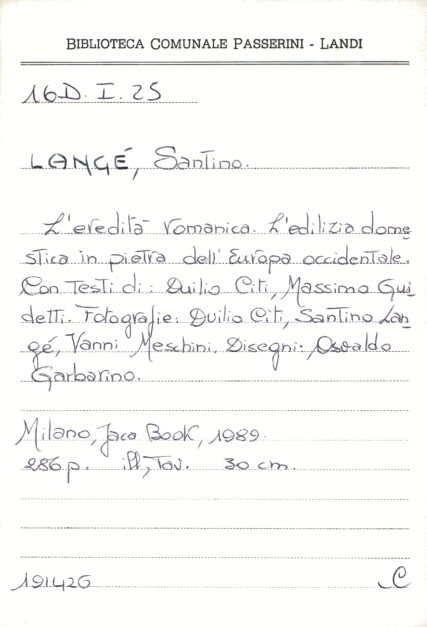 BIBLIOTECA COMUNALE PASSERINI - LANDI
16D. I. 25
LANGÉ, Santino.
L'eredità romanica. L'edilizia dome
stica in pietra dell'Europa occidentale.
Con Testi di: Duilio Citi, Massimo Gui
detti. Fotografie: Duilio Citi, Santino Lan
gé, Vanni Meschini. Disegni: Osvaldo
Garbarino.
Milano, Jaca Book, 1989.
286 p. ill., Tav. 30 cm.
191426 C